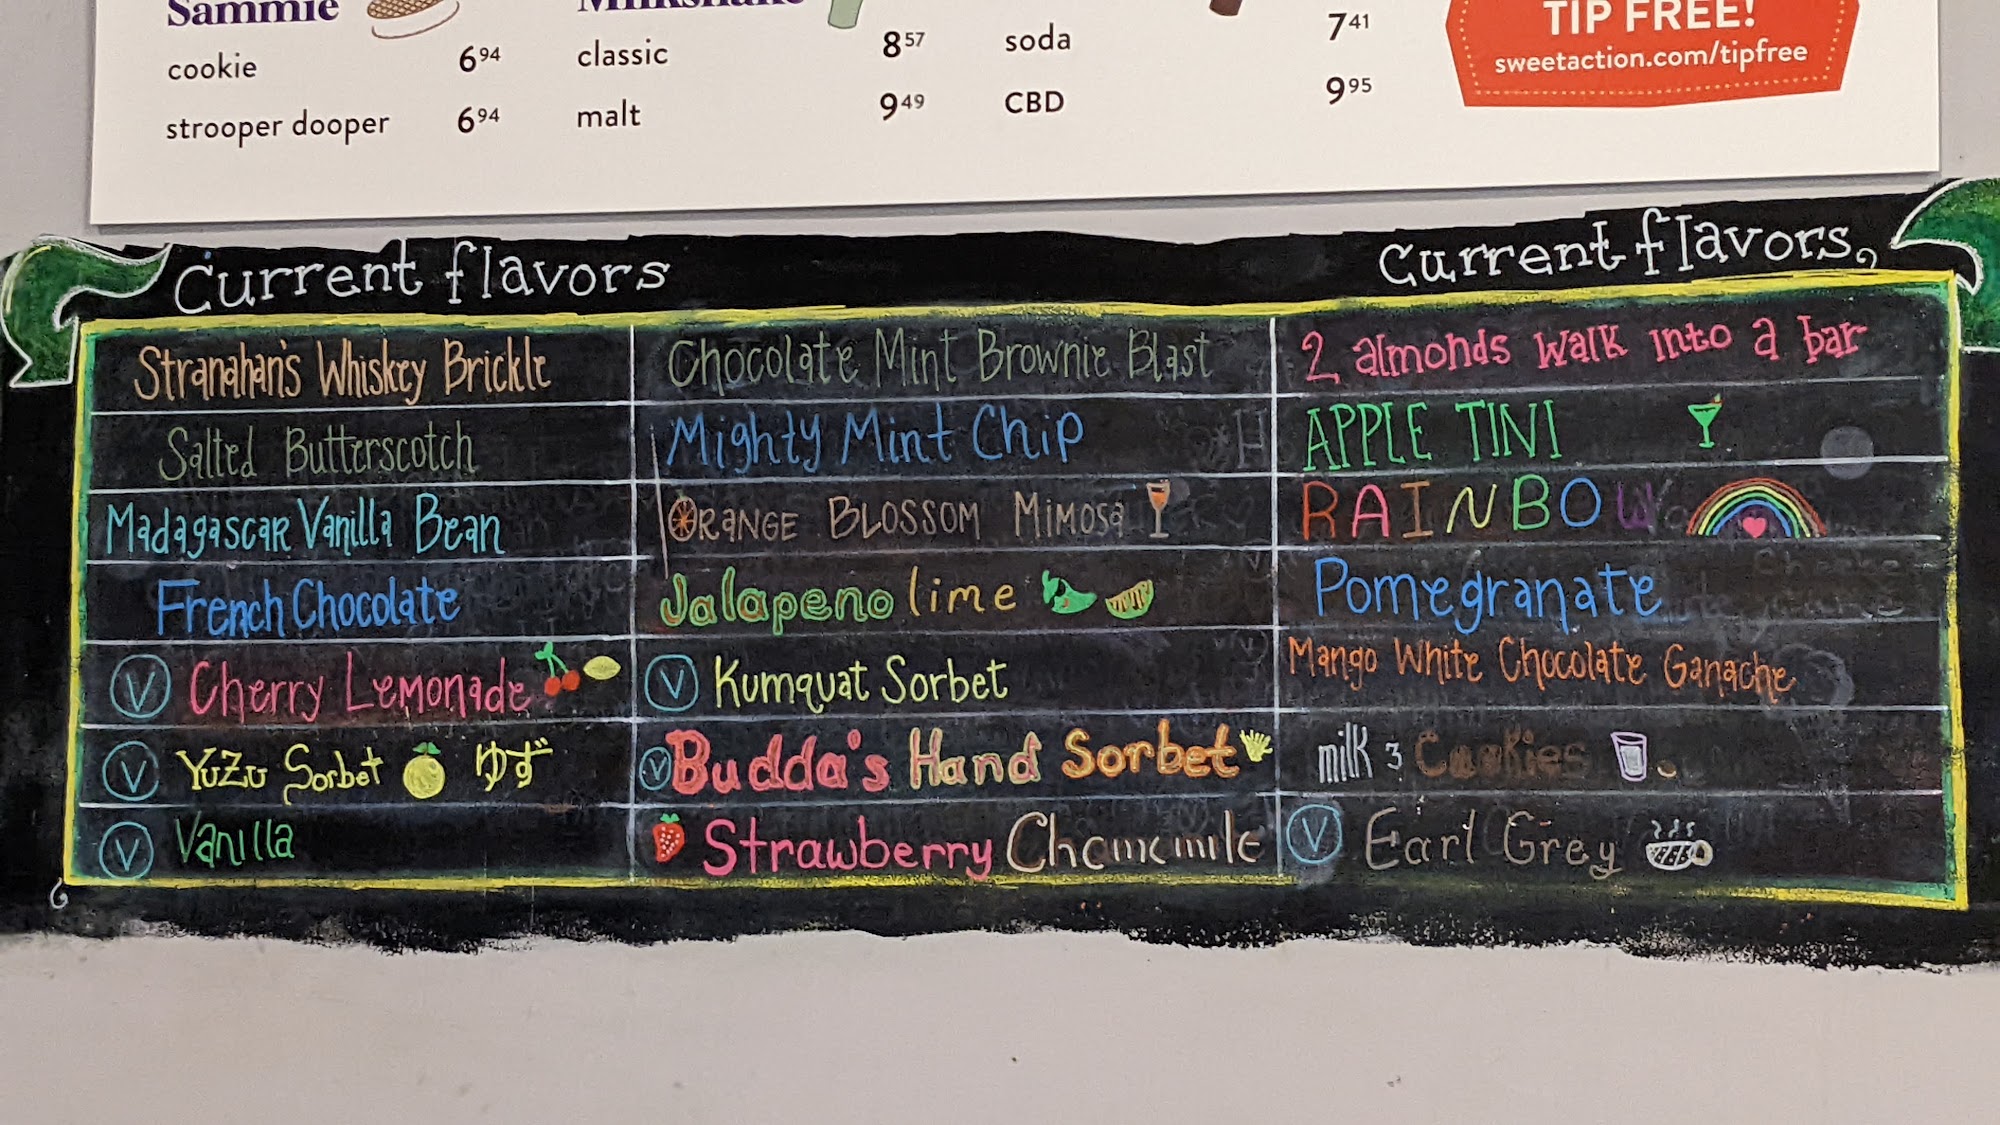 Sammie
cookie 6⁹⁴
strooper dooper 6⁹⁴
Milkshake
classic 8⁵⁷
malt 9⁴⁹
soda 7⁴¹
CBD 9⁹⁵
TIP FREE!
sweetaction.com/tipfree
Current flavors
Stranahan's Whiskey Brickle
Salted Butterscotch
Madagascar Vanilla Bean
French Chocolate
V Cherry Lemonade
V Yuzu Sorbet ゆず
V Vanilla
Chocolate Mint Brownie Blast
Mighty Mint Chip
ORANGE BLOSSOM MIMOSa
Jalapeno lime
V Kumquat Sorbet
V Budda's Hand Sorbet
Strawberry Chamomile
Current flavors
2 almonds walk into a bar
APPLE TINI
RAINBOW
Pomegranate
Mango White Chocolate Ganache
milk & Cookies
V Earl Grey